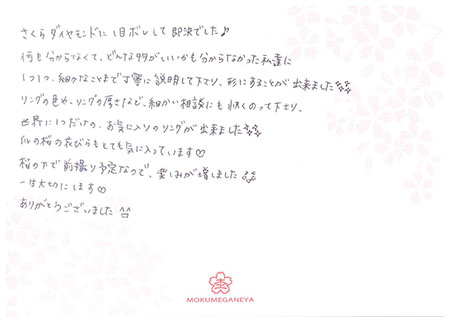 さくらダイヤモンドに1目ボレして即決でした♪
何も分からなくて、どんな物がいいかも分からなかった私達に
1つ1つ、細かなことまで丁寧に説明して下さり、形にすることが出来ました
リングの色や、リングの厚さなど、細かい相談にも快くのって下さり、
世界に1つだけの、お気に入りのリングが出来ました
桜の花びらもとても気に入っています♡
桜の下で前撮り予定なので、楽しみが増しました
一生大切にします♡
ありがとうございました ^^
MOKUMEGANEYA